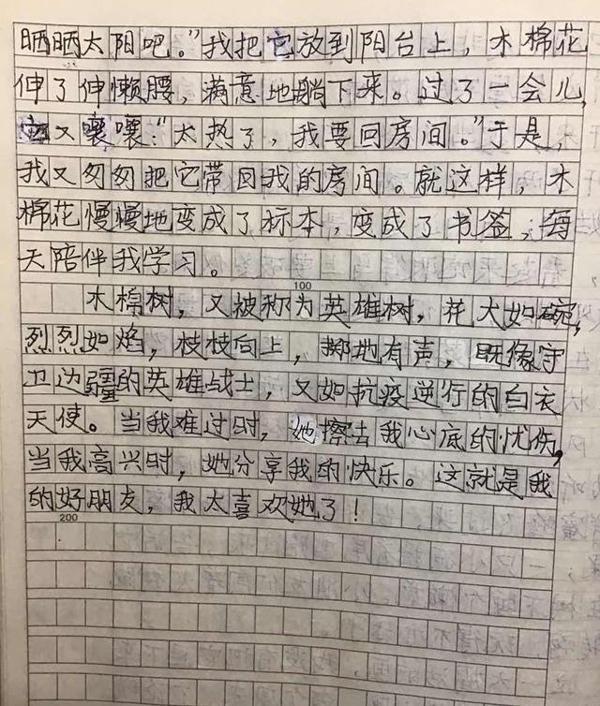 晒晒太阳吧。”我把它放到阳台上，木棉花
伸了伸懒腰，满意地躺下来。过了一会儿，
它又嚷嚷：“太热了，我要回房间。”于是，
我又匆匆把它带回我的房间。就这样，木
棉花慢慢地变成了标本，变成了书签，每
天陪伴我学习。
100
木棉树，又被称为英雄树，花大如碗，
烈烈如焰，枝枝向上，掷地有声，既像守
卫边疆的英雄战士，又如抗疫逆行的白衣
天使。当我难过时，她擦去我心底的忧伤，
当我高兴时，她分享我的快乐。这就是我
的好朋友，我太喜欢她了！
200